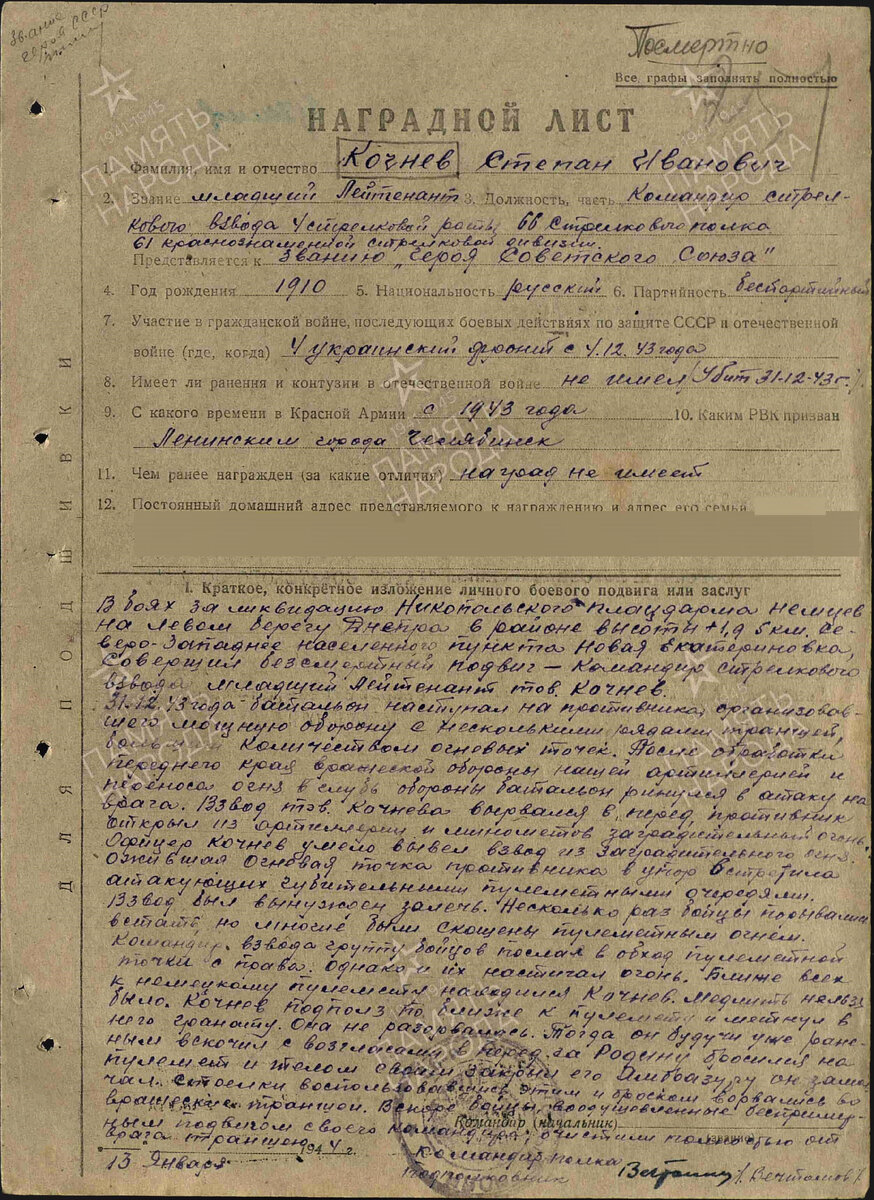 Звание
героя СССР
Посмертно
Все графы заполнять полностью
НАГРАДНОЙ ЛИСТ
1. Фамилия, имя и отчество Кочнев Степан Иванович
2. Звание младший Лейтенант 3. Должность, часть Командир стрел-
кового взвода 4 стрелковой роты 66 Стрелкового полка
61 краснознаменной стрелковой дивизии.
Представляется к званию "Героя Советского Союза"
4. Год рождения 1910 5. Национальность русский 6. Партийность беспартийный
7. Участие в гражданской войне, последующих боевых действиях по защите СССР и отечественной
войне (где, когда) 4 украинский фронт с 4.12.43 года
8. Имеет ли ранения и контузии в отечественной войне не имел /Убит 31-12-43 г./.
9. С какого времени в Красной Армии с 1943 года 10. Каким РВК призван
Ленинским города Челябинск
11. Чем ранее награжден (за какие отличия) наград не имеет
12. Постоянный домашний адрес представляемого к награждению и адрес его семьи
ДЛЯ ПОДШИВКИ
I. Краткое, конкретное изложение личного боевого подвига или заслуг
В боях за ликвидацию Никопольского плацдарма немцев
на левом берегу Днепра в районе высоты +1,9 5 км. Се-
веро-Западнее населенного пункта Новая Екатериновка,
Совершил безсмертный подвиг - Командир стрелкового
взвода младший Лейтенант тов. Кочнев.
31-12-43 года батальон наступал на противника, организовав-
шего мощную оборону с несколькими рядами траншей,
большим количеством огневых точек. После обработки
переднего края вражеской обороны нашей артиллерией и
переноса огня в глубь обороны батальон ринулся в атаку на
врага. Взвод тов. Кочнева вырвался в перед, противник
открыл из артиллерии и минометов заградительный огонь.
Офицер Кочнев умело вывел взвод из заградительного огня.
Ожившая Огневая точка противника в упор встретила
атакующих губительными пулеметными очередями.
Взвод был вынужден залечь. Несколько раз бойцы порывались
встать, но многие были скошены пулеметным огнем.
Командир взвода группу бойцов послал в обход пулеметной
точки с права. Однако и их настигал огонь. Ближе всех
к немецкому пулемету находился Кочнев. Медлить нельзя
было. Кочнев подполз по ближе к пулемету и метнул в
него гранату. Она не разорвалась. Тогда он будучи уже ране-
ным вскочил с возгласами вперед за Родину бросился на
пулемет и телом своим закрыл его Амбразуру он замол-
чал. Стрелки воспользовавшись этим и броском ворвались во
вражеские траншеи. Вскоре бойцы, воодушевленные беспример-
ным подвигом своего командира, очистили полностью от
врага траншею
Командир (начальник)
13 Января 1944 г.
Командир полка
подполковник /Вечтомов/
1941-1945
ПАМЯТЬ
НАРОДА